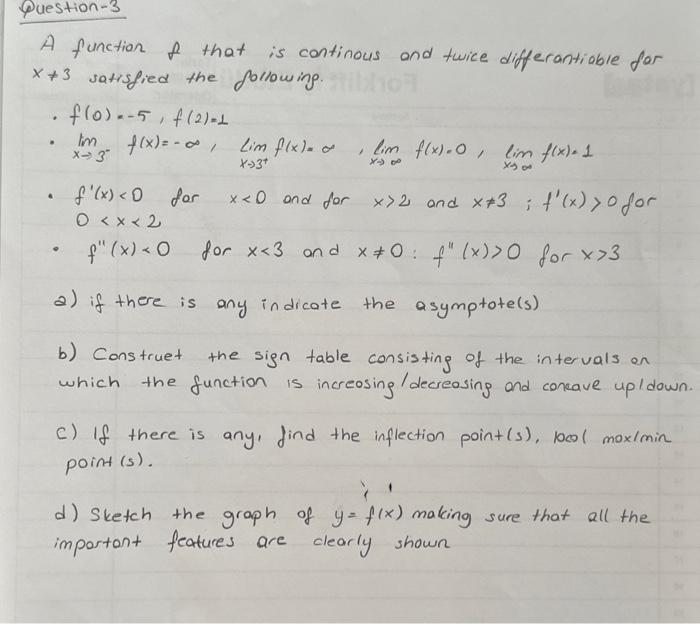 Question-3
A function f that is continous and twice differantiable for
x ≠ 3 satisfied the following.
. f(0) = -5 , f(2) = 1
. lim x→3⁻ f(x) = -∞ , lim x→3⁺ f(x) = ∞ , lim x→∞ f(x) = 0 , lim x→∞ f(x) = 1
. f'(x) < 0 for x < 0 and for x > 2 and x ≠ 3 ; f'(x) > 0 for
0 < x < 2
. f"(x) < 0 for x < 3 and x ≠ 0 : f"(x) > 0 for x > 3
a) if there is any indicate the asymptote(s)
b) Construct the sign table consisting of the intervals on
which the function is increasing/decreasing and concave up/down.
c) If there is any, find the inflection point(s), local max/min
point(s).
d) Sketch the graph of y = f(x) making sure that all the
important features are clearly shown